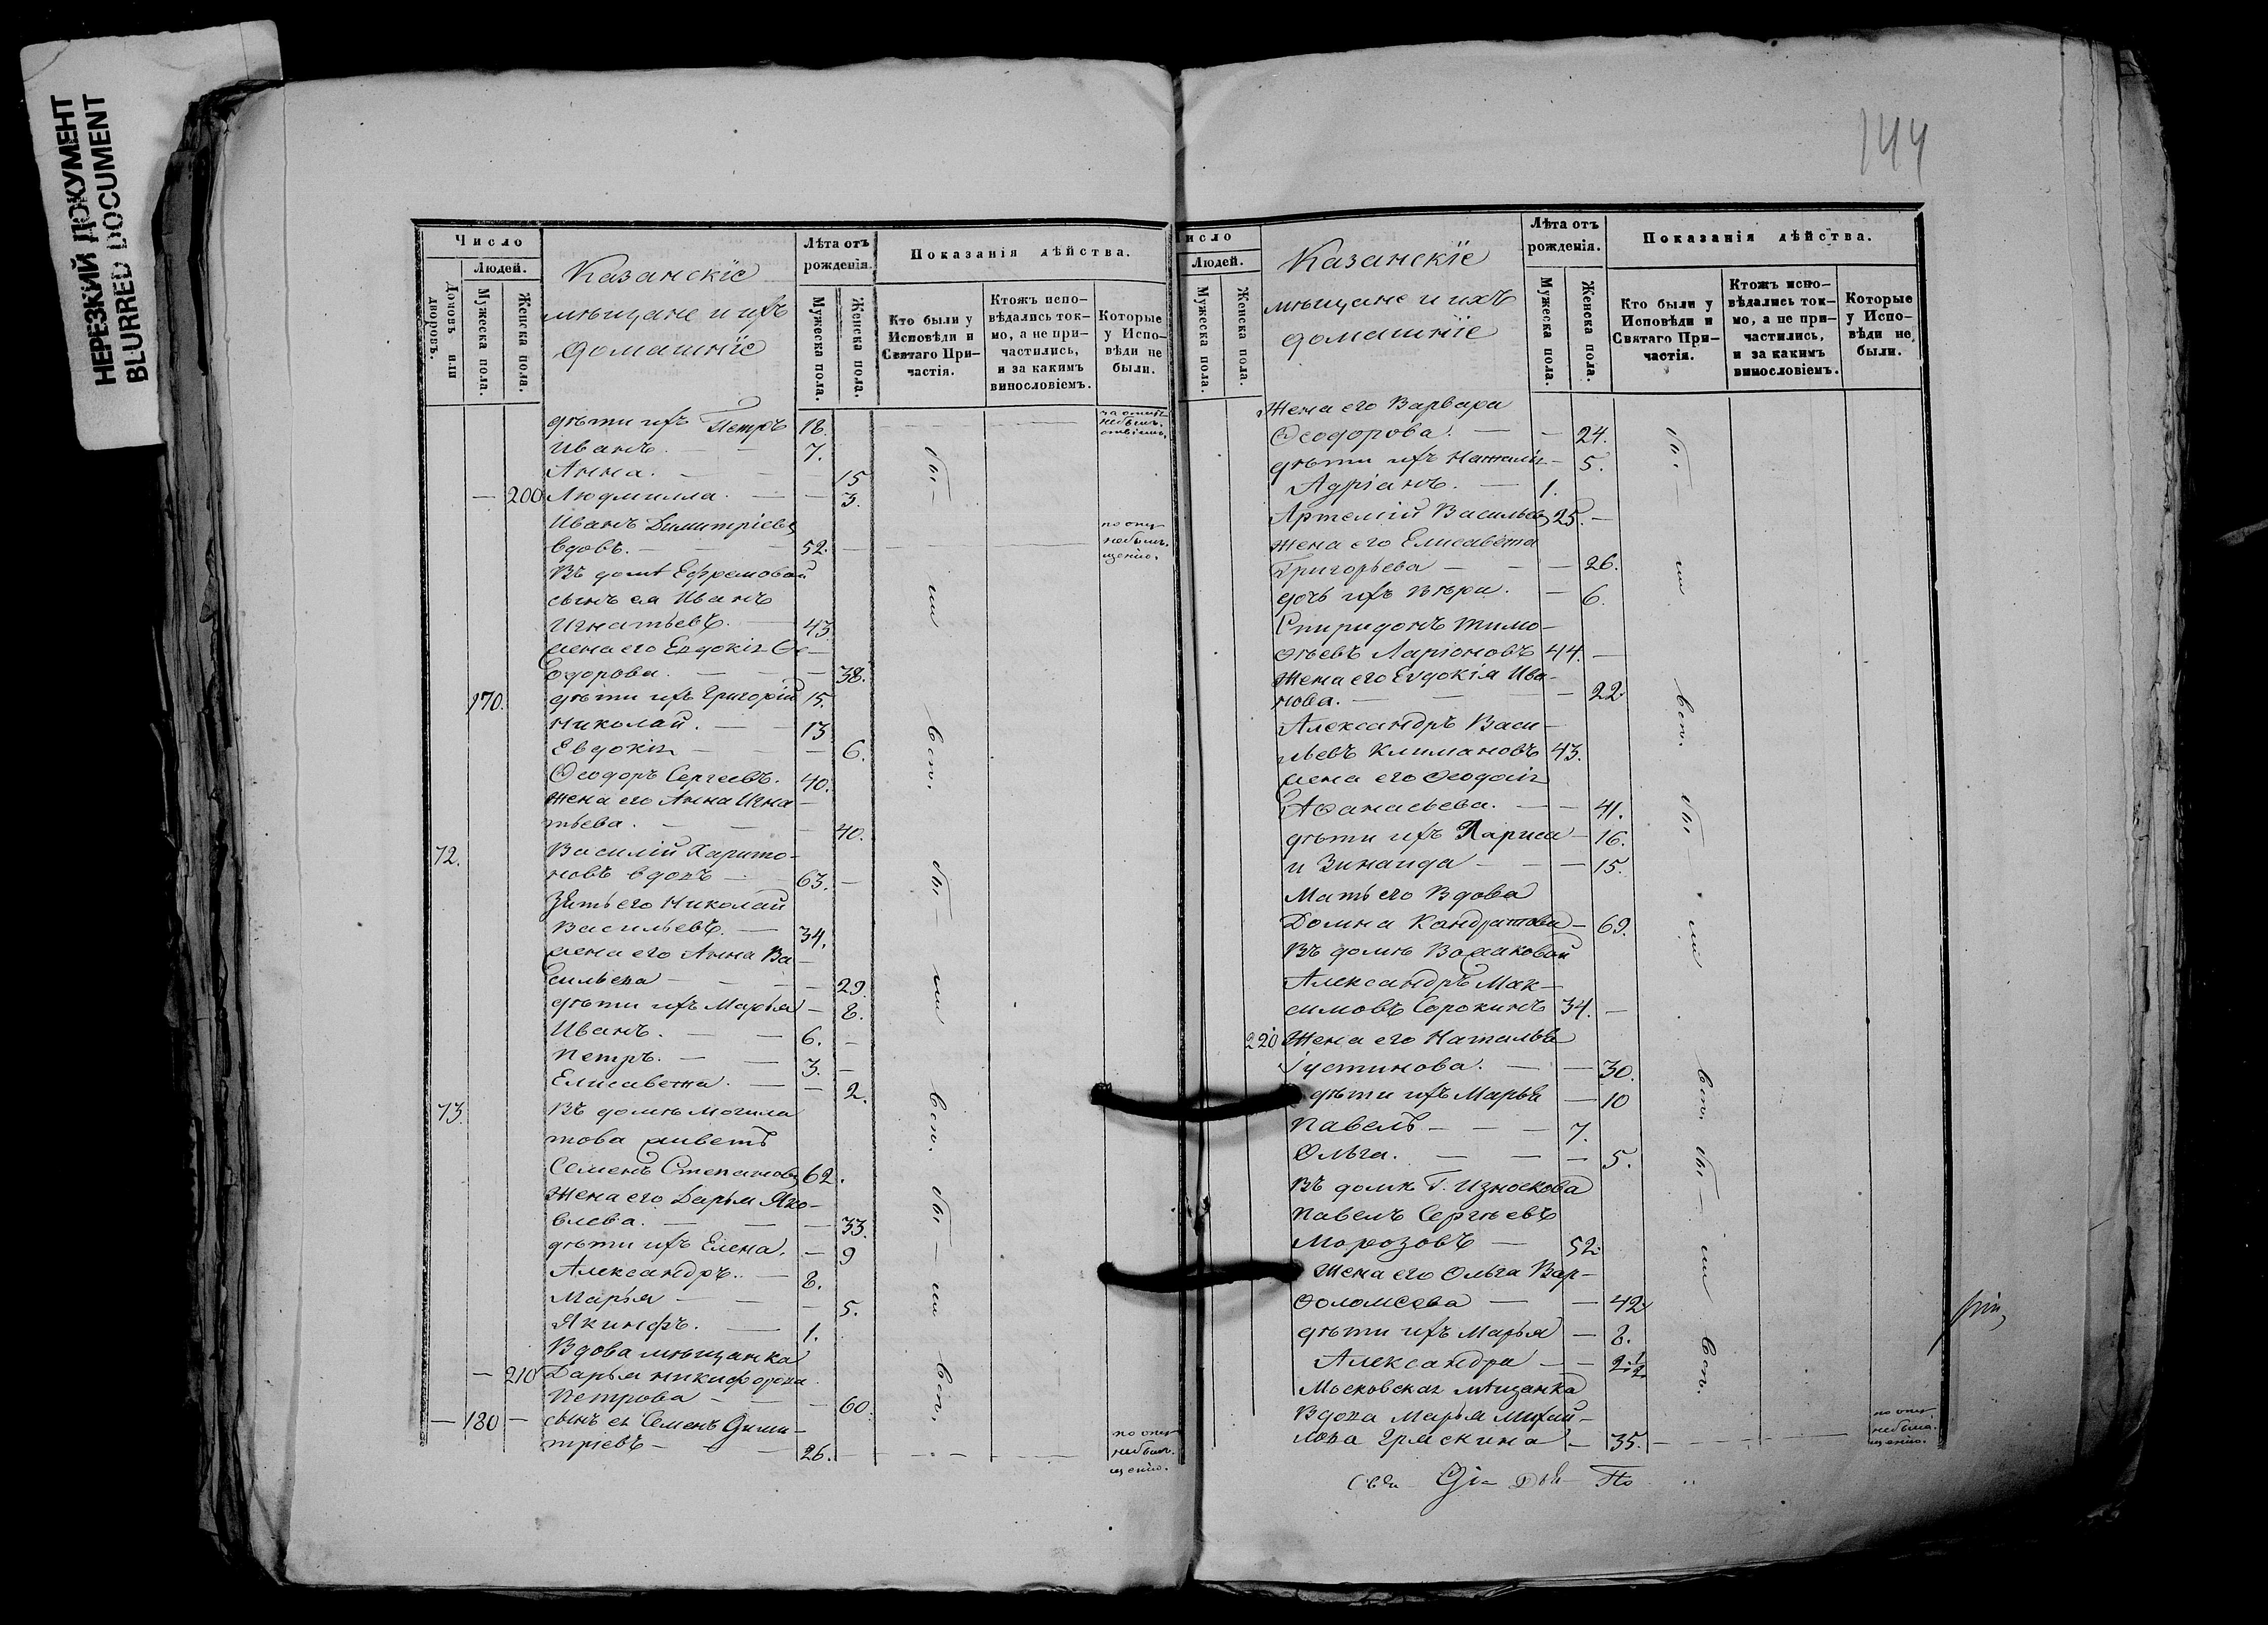 НЕРЕЗКИЙ ДОКУМЕНТ
BLURRED DOCUMENT
Число
Людей.
Домовъ или дворовъ.
Мужеска пола.
Женска пола.
Казанскіе
мѣщане и ихъ
домашніе
Лѣта отъ рожденія.
Мужеска пола.
Женска пола.
Показанія дѣйства.
Кто были у Исповѣди и Святаго Причастія.
Ктожъ исповѣдались токмо, а не причастились, и за какимъ винословіемъ.
Которые у Исповѣди не были.
дѣти ихъ Петръ 18.
Иванъ. 7.
Анна. 15
200 Людмилла. 3.
Иванъ Димитріевъ
вдовъ. 52. по опу не былъ. щенію.
Въ домѣ Ефремовой
сынъ ея Иванъ
Игнатьевъ. 43
жена его Евдокія Ѳе-
одорова. 38.
170. дѣти ихъ Григорій 15.
Николай. 13
Евдокія 6.
Ѳеодоръ Сергеевъ. 40.
жена его Анна Игна-
тьева. 40.
72. Василій Харито-
новъ вдовъ 63.
Зять его Николай
Васильевъ. 34.
жена его Анна Ва-
сильева 29.
дѣти ихъ Марья 8.
Иванъ. 6.
Петръ. 3.
Елисавета. 2.
73. Въ домѣ Могила
това живетъ
Семенъ Степановъ 62.
жена его Дарья Яко-
влева. 33.
дѣти ихъ Елена. 9
Александръ. 8.
Марья 5.
Якинфъ. 1.
Вдова мѣщанка
210 Дарья Никифорова
Петрова 60.
180 сынъ ея Семенъ Дими-
тріевъ 26. по опу не былъ. щенію.
бы - ли вст.
бы - ли вст.
бы - ли вст.
144
Число
Людей.
Мужеска пола.
Женска пола.
Казанскіе
мѣщане и ихъ
домашніе
Лѣта отъ рожденія.
Мужеска пола.
Женска пола.
Показанія дѣйства.
Кто были у Исповѣди и Святаго Причастія.
Ктожъ исповѣдались токмо, а не причастились, и за какимъ винословіемъ.
Которые у Исповѣди не были.
Жена его Варвара
Ѳеодорова. 24.
дѣти ихъ Наталія 5.
Адріанъ. 1.
Артемій Васильевъ 25.
жена его Елисавета
Григорьева 26.
дочь ихъ Вѣра. 6.
Спиридонъ Тимо-
ѳѣевъ Ларіоновъ 44.
жена его Евдокія Ива-
нова. 22.
Александръ Васи-
льевъ Климановъ 43.
жена его Ѳеодосія
Аѳанасьева. 41.
дѣти ихъ Лариса 16.
и Зинаида 15.
Мать его Вдова
Домна Кондратова 69.
Въ домѣ
Александръ Мак-
симовъ Сорокинъ 34.
220 Жена его Наталья
Іустинова. 30.
дѣти ихъ Марья 10
Павелъ 7.
Ольга. 5.
Въ домѣ Г. Износкова
Павелъ Сергѣевъ
Морозовъ 52.
Жена его Ольга Вар-
ѳоломеева 42.
дѣти ихъ Марья 8.
Александра 2 1/2
Московская мѣщанка
Вдова Марья Михай-
лова Грязкина 35. по опу не была. щенію.
бы - ли вст.
бы - ли вст.
бы - ли вст.